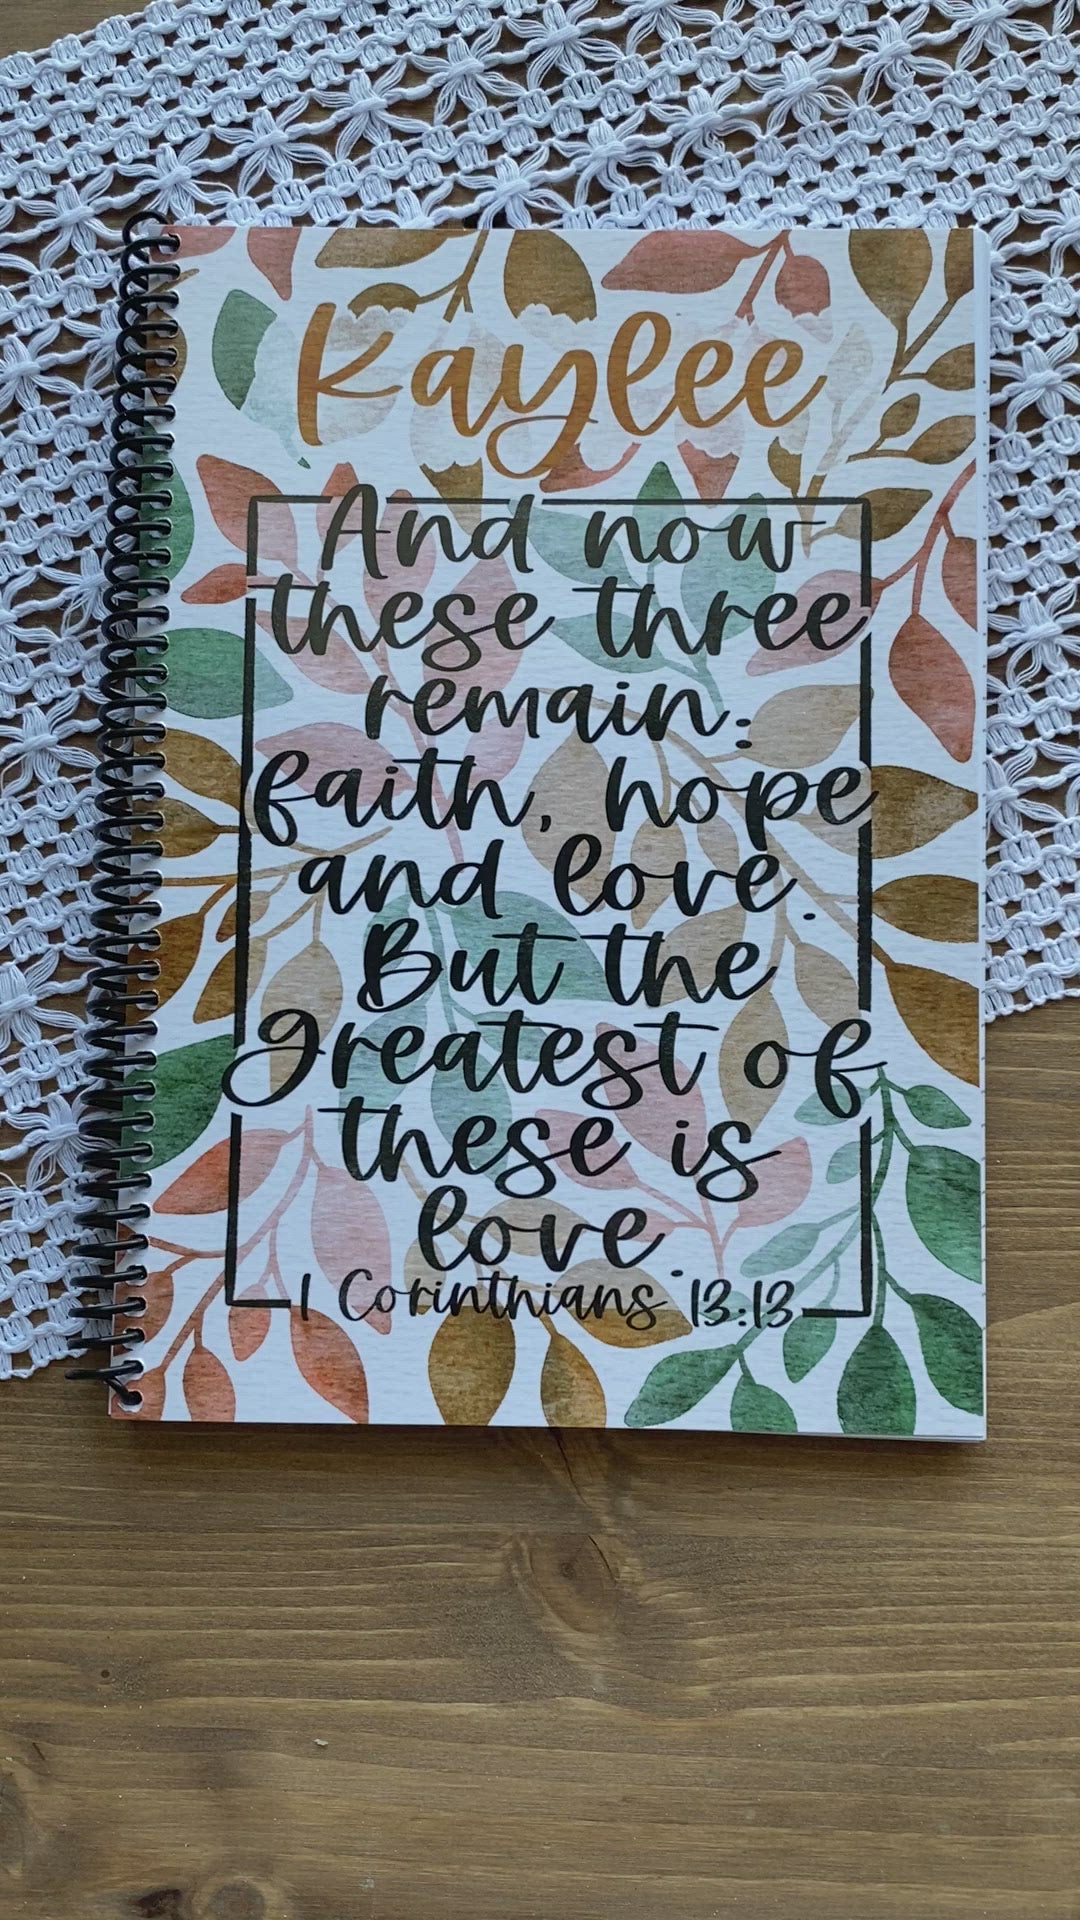 Kaylee
And now
these three
remain:
faith, hope
and love.
But the
greatest of
these is
love.
1 Corinthians 13:13